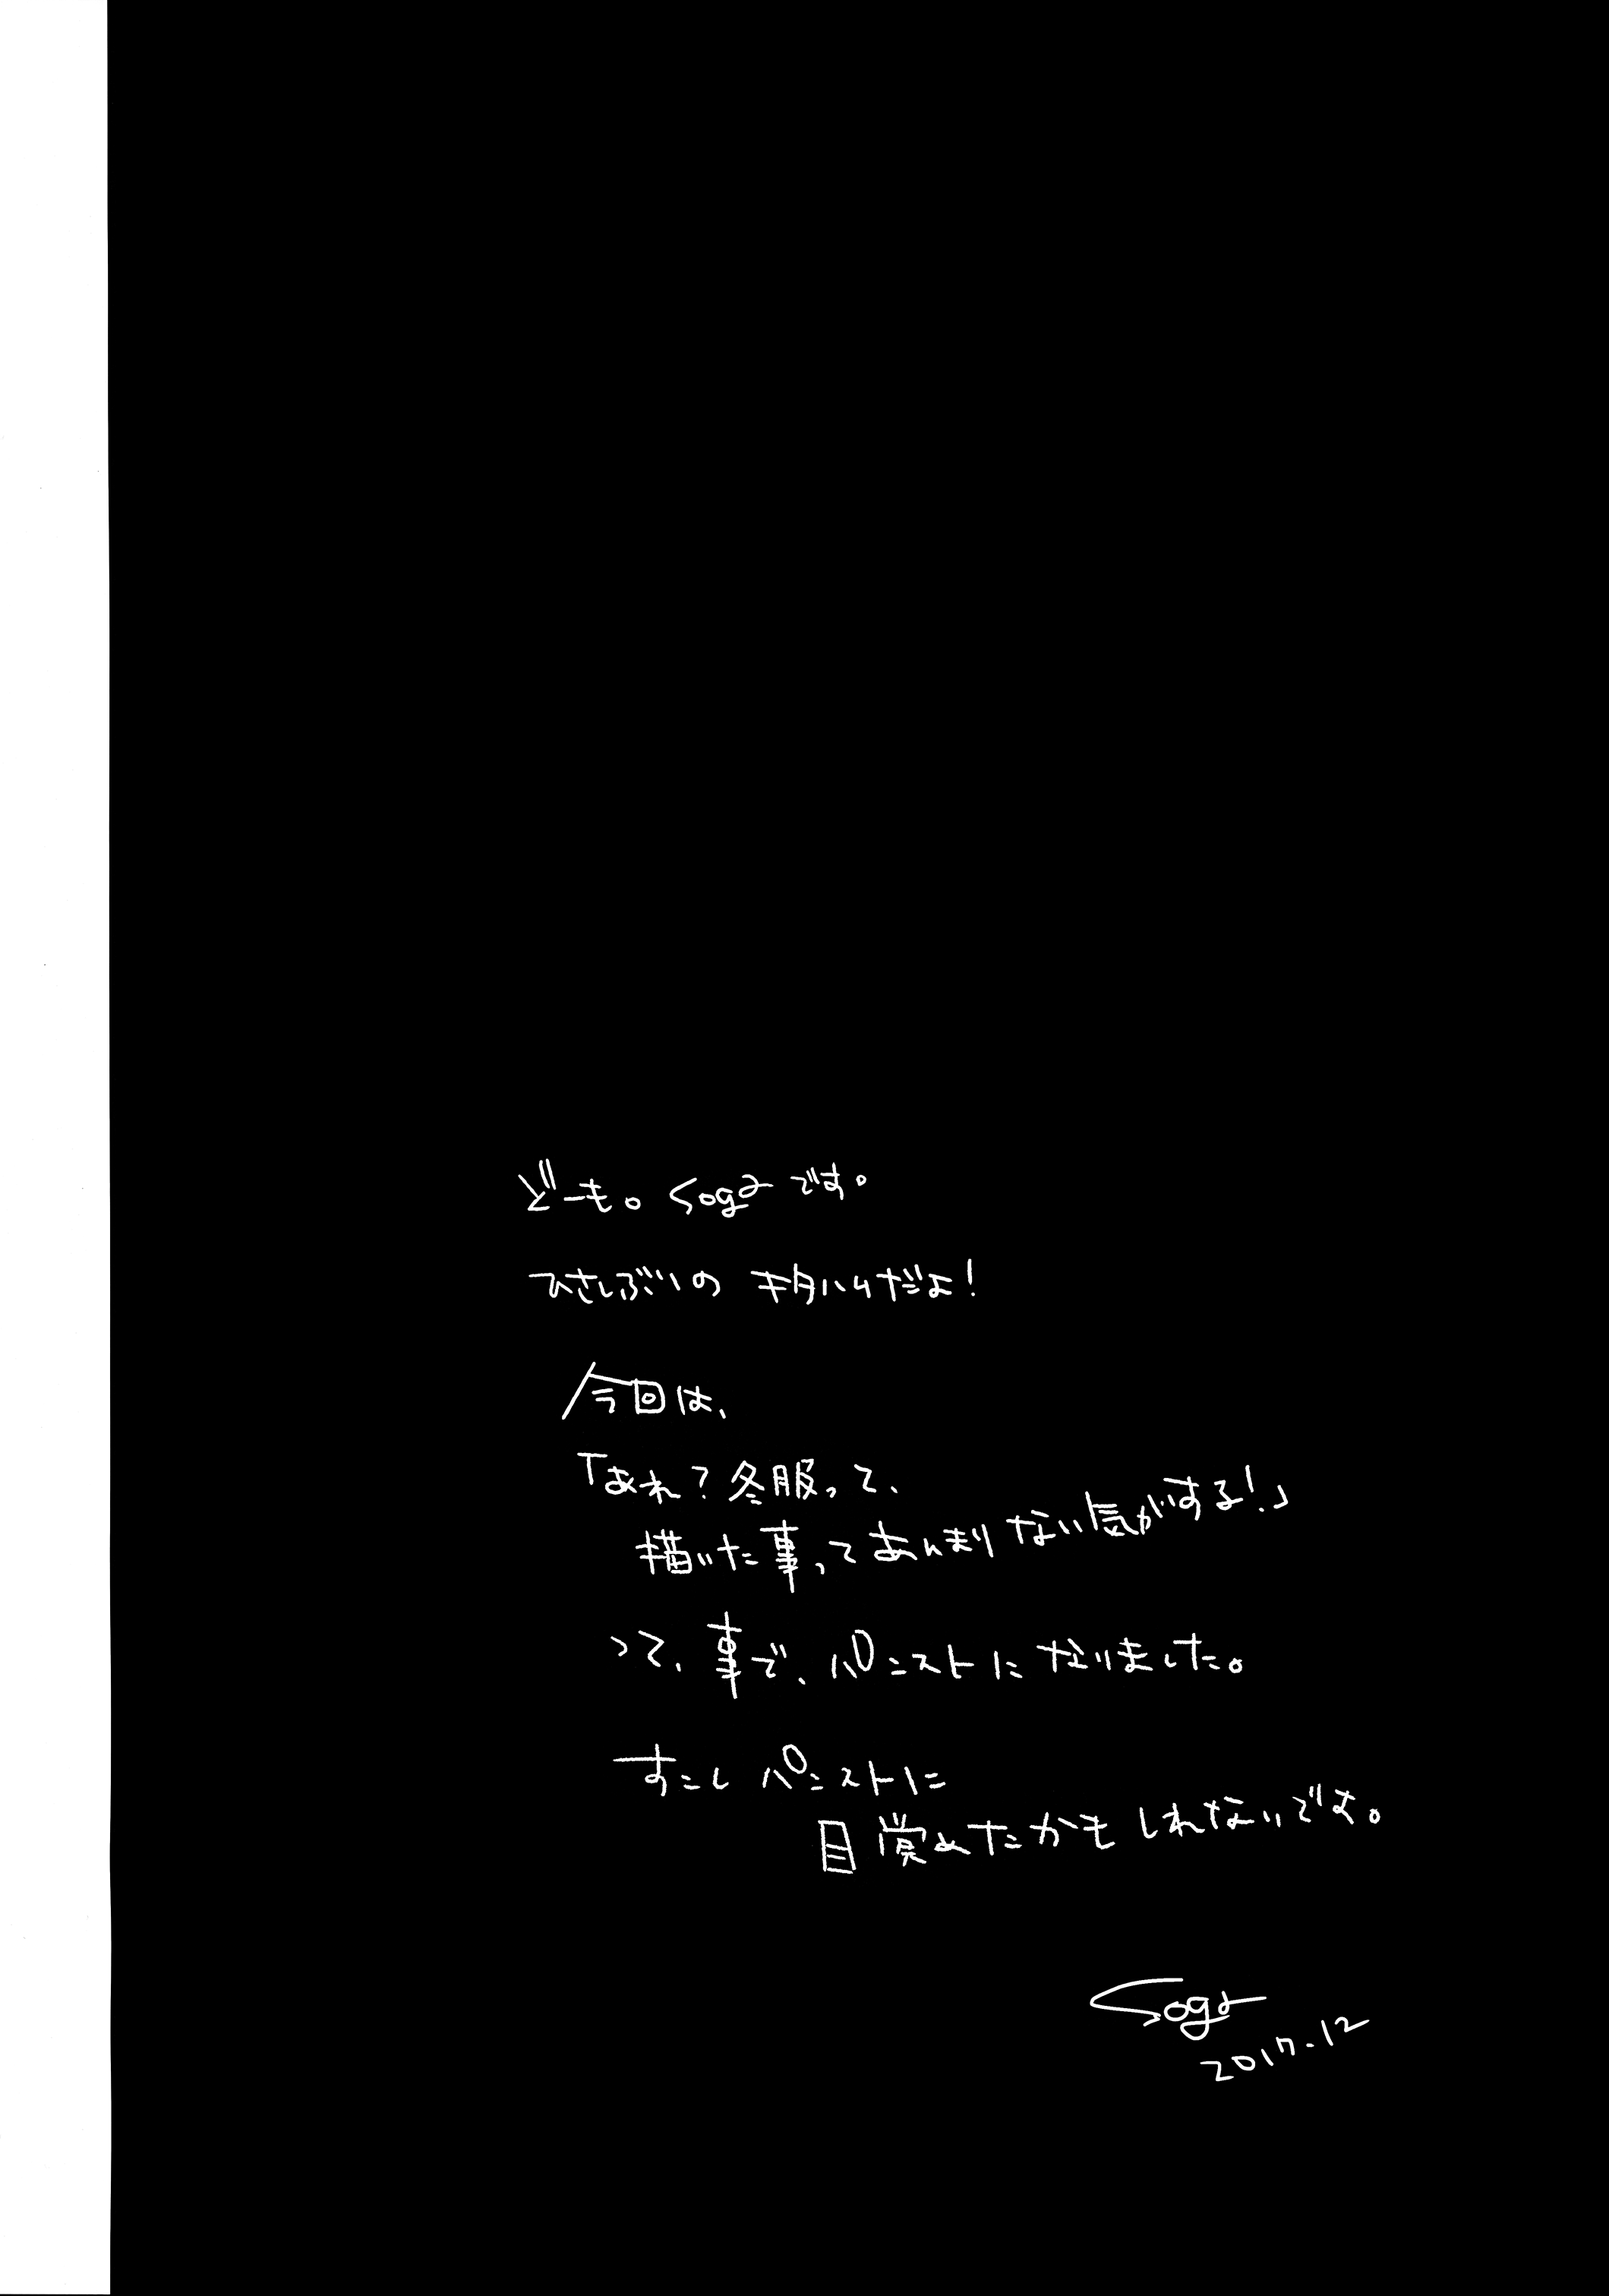 どーも。sogaです。
ひさしぶりの キタハルだよ!
今回は、
「あれ?冬服って、
描いた事ってあんまりない気がする!」
って、事で、パンストになりました。
すこし パンストに
目覚めたかもしれないです。
soga
2017.12